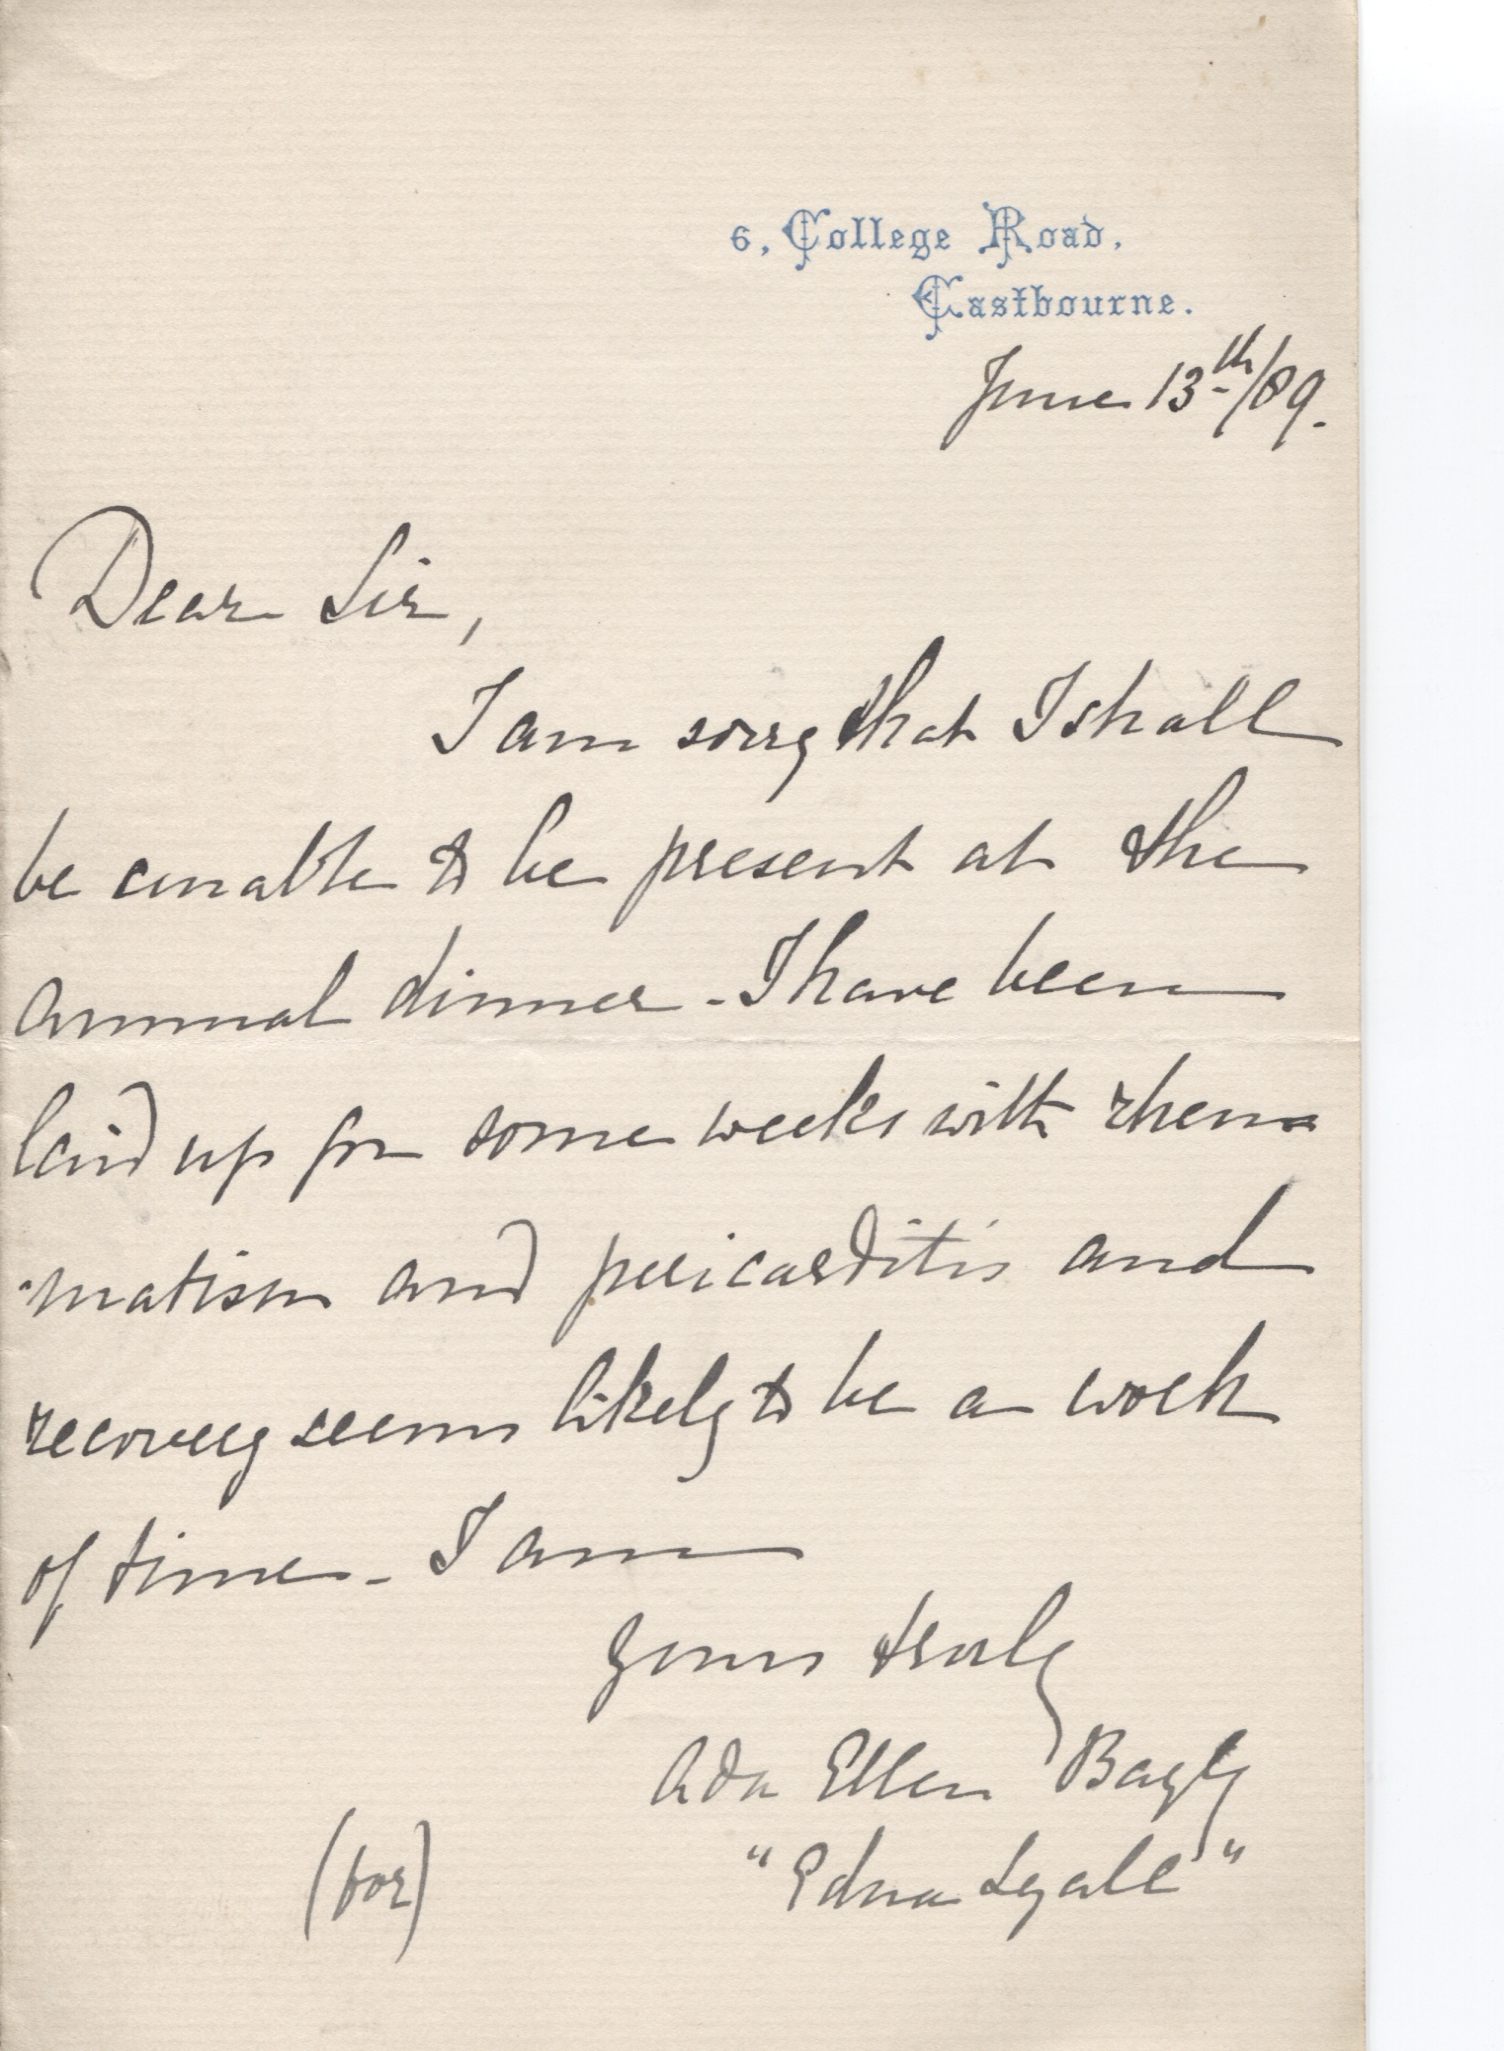 6, College Road,
Eastbourne.
June 13th/89.
Dear Sir,
I am sorry that I shall
be unable to be present at the
annual dinner. I have been
laid up for some weeks with rheu-
-matism and pericarditis and
recovery seems likely to be a work
of time. I am
yours truly
Ada Ellen Bayly
(for) "Edna Lyall"